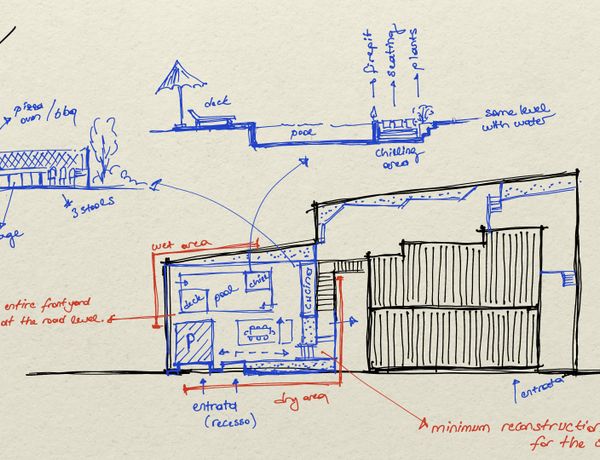 pizza
oven / bbq
3 stools
age
deck
pool
firepit
seating
plants
chilling
area
same level
with water
wet area
entire frontyard
at the road level.
deck
pool
chill
cucina
P
entrata
(recesso)
dry area
entrata
minimum reconstruction
for the